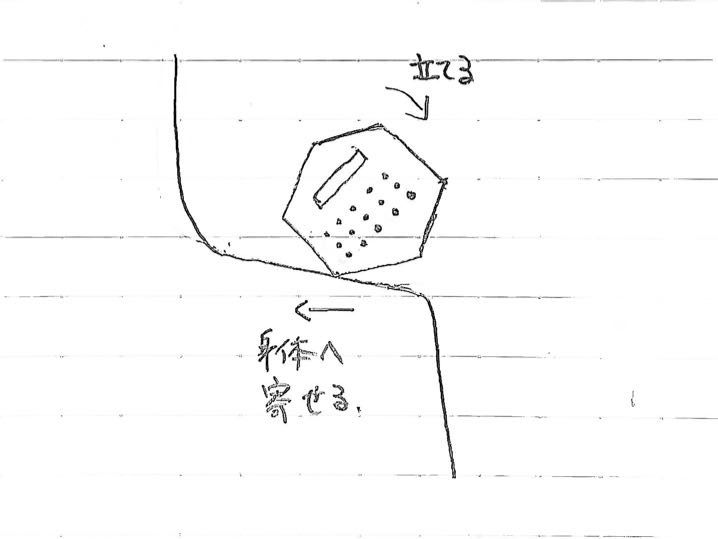 立てる
身体へ
寄せる.